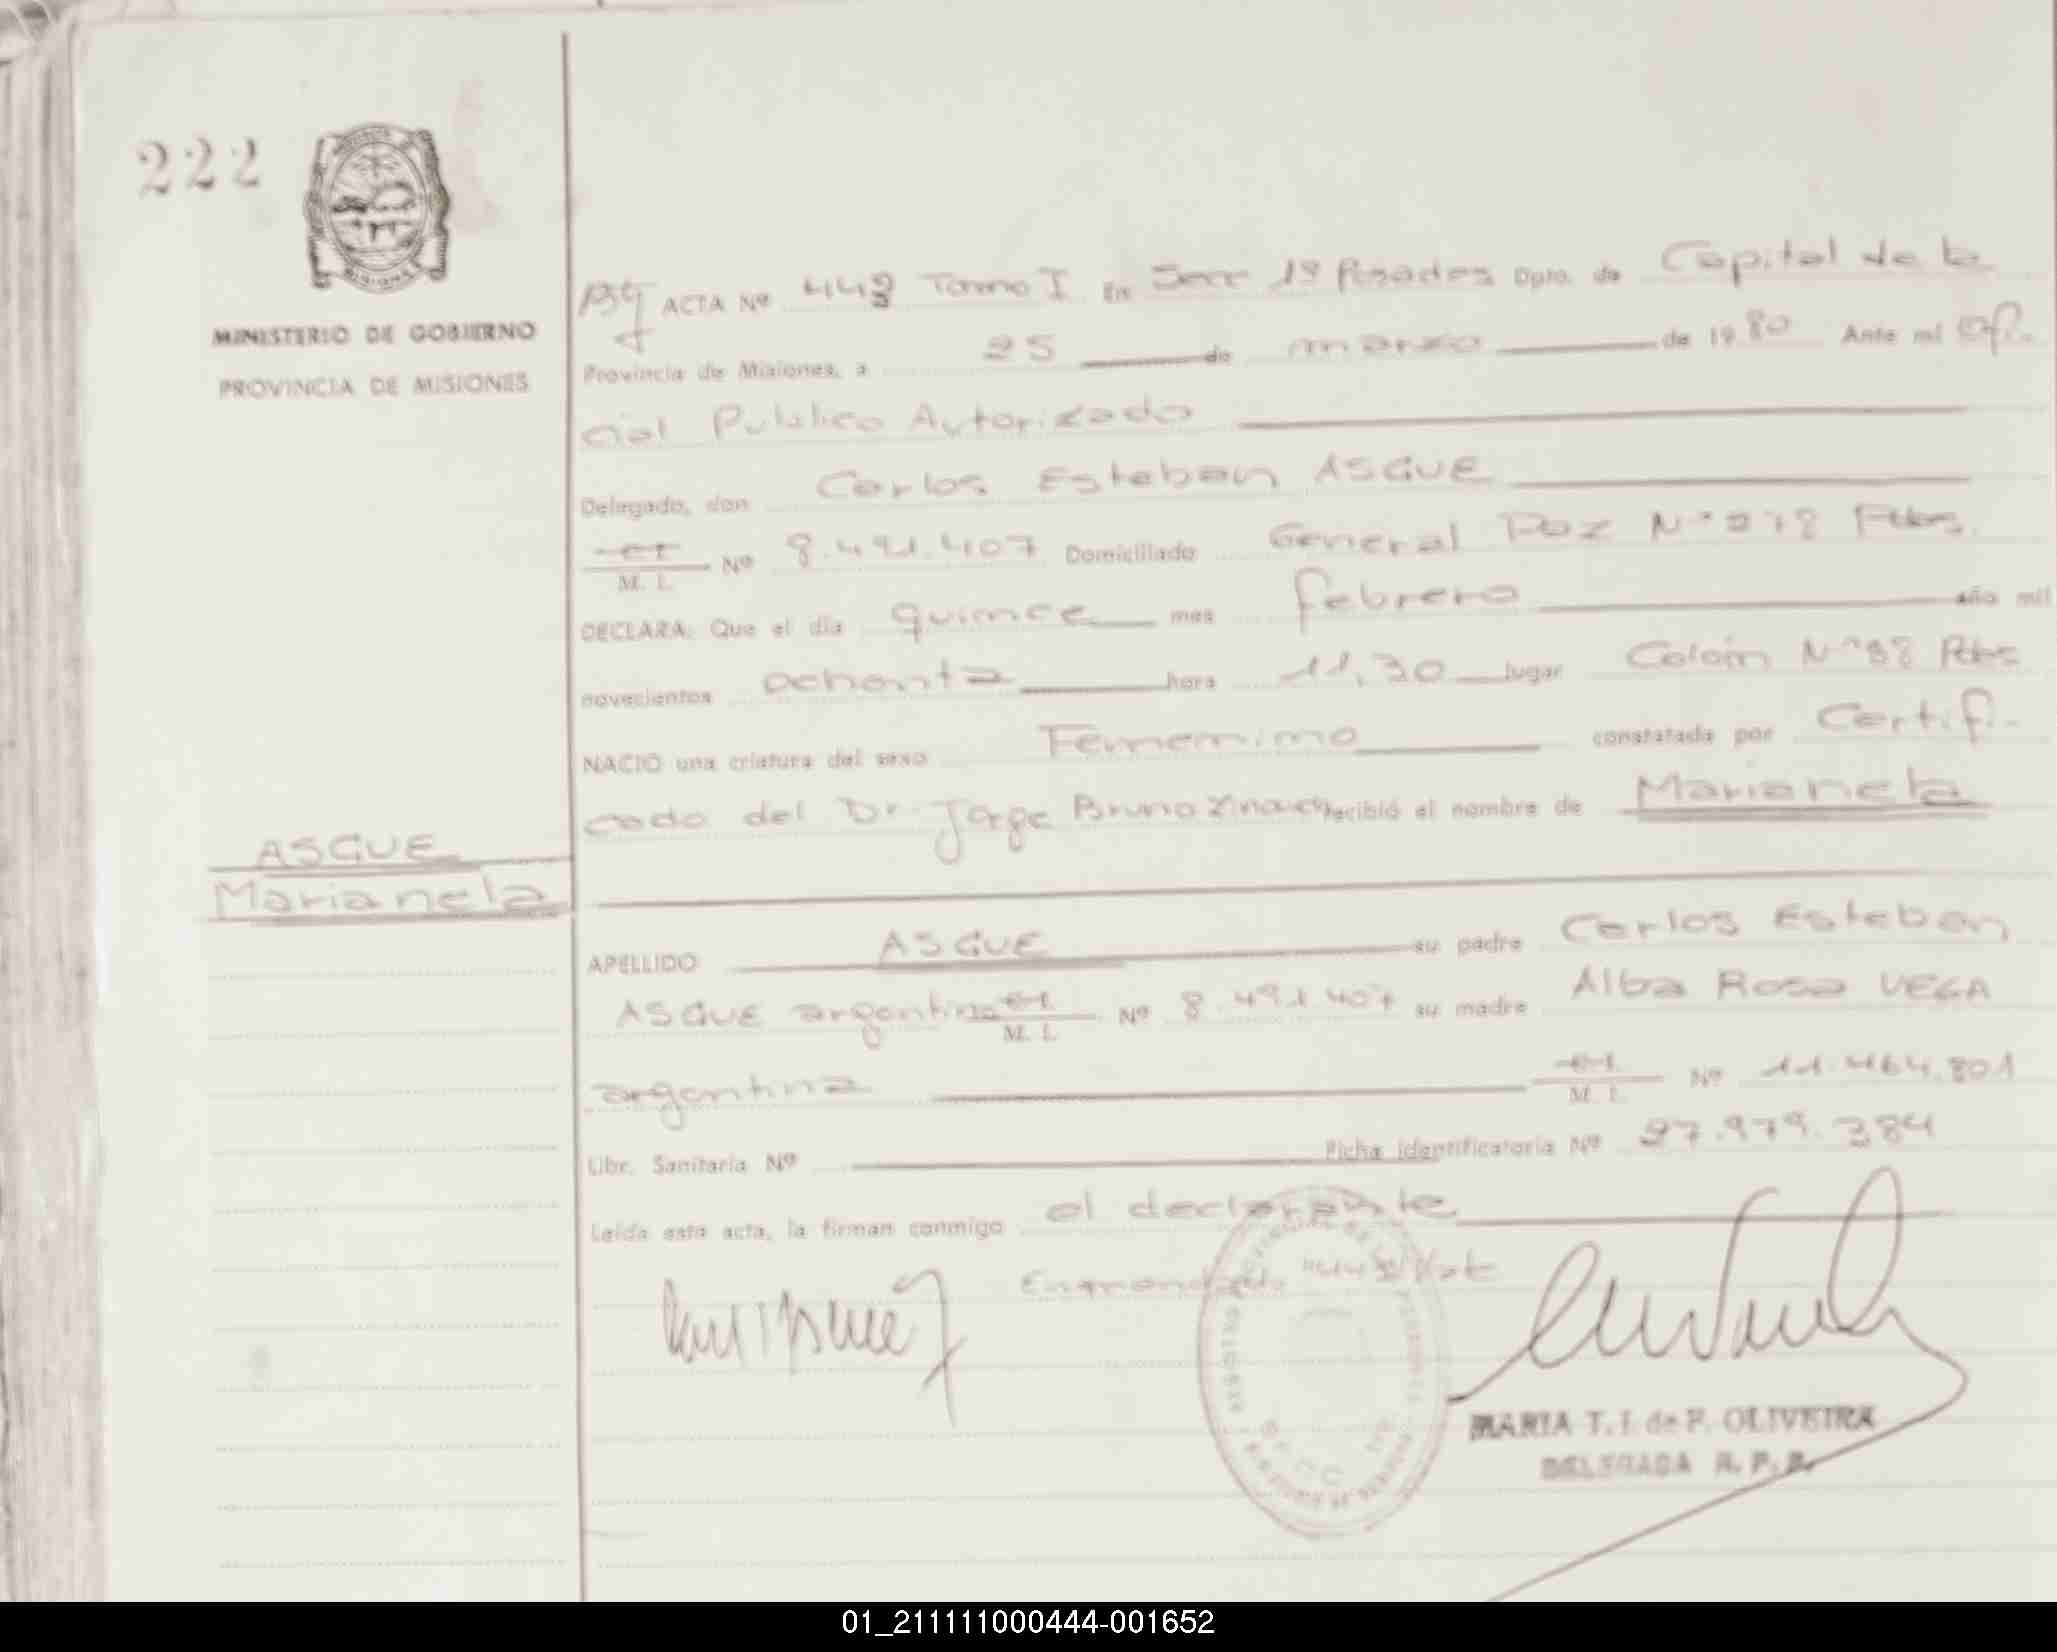 222
MINISTERIO DE GOBIERNO
PROVINCIA DE MISIONES
ACTA Nº 443 Tomo I En Secc 1ª Posadas Dpto. de Capital de la
Provincia de Misiones, a 25 de marzo de 1980 Ante mí Ofi-
cial Publico Autorizado
Delegado, don Carlos Esteban ASGUE
M. I. Nº 8.491.407 Domiciliado General Paz Nº 278 Pdas.
DECLARA: Que el día quince mes febrero año mil
novecientos ochenta hora 11,30 lugar Colón Nº 88 Pdas
NACIO una criatura del sexo Femenino constatada por Certifi-
cado del Dr. Jorge Bruno recibió el nombre de Marianela
ASGUE
Marianela
APELLIDO ASGUE su padre Carlos Esteban
ASGUE argentino M. I. Nº 8.491.407 su madre Alba Rosa VEGA
argentina M. I. Nº 11.464.801
Libr. Sanitaria Nº Ficha identificatoria Nº 27.979.384
Leída esta acta, la firman conmigo el declarante
Enmendado
MARIA T. I. de F. OLIVEIRA
DELEGADA R. P. P.
01_211111000444-001652